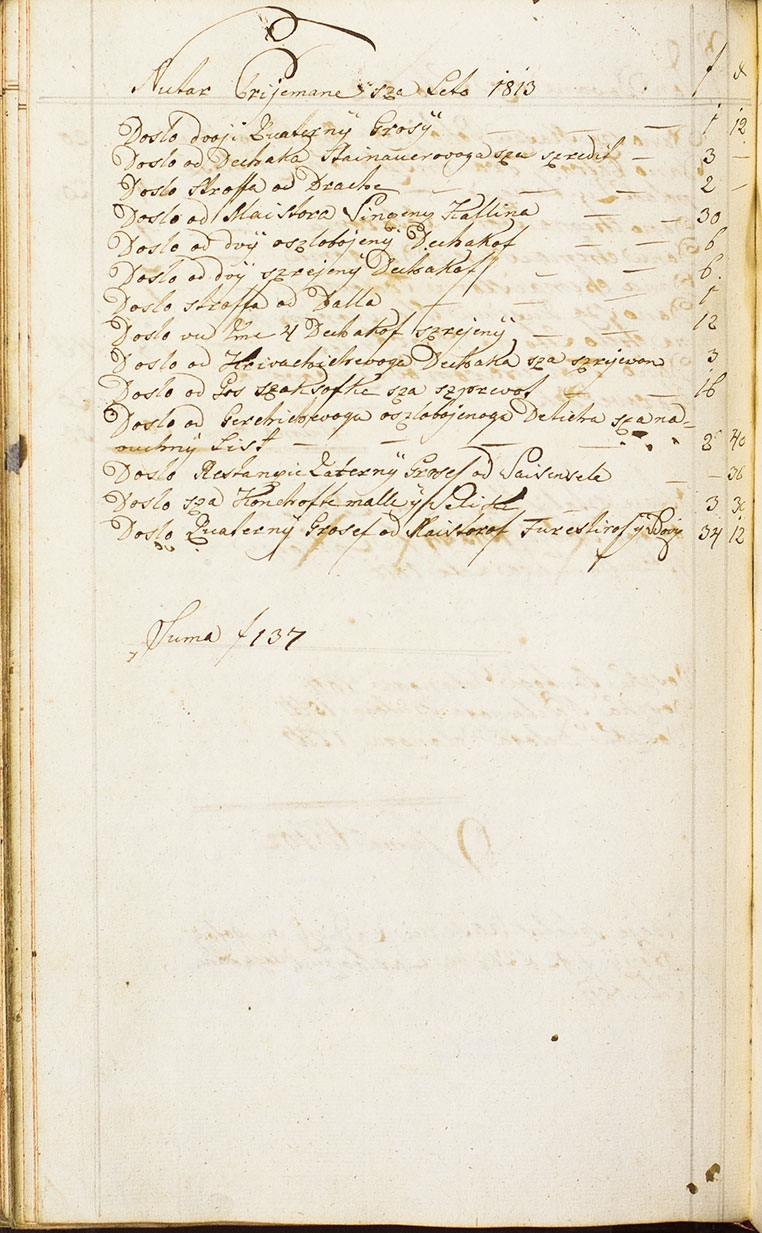 Nutar Prijemane sza Leto 1813 f x
Doslo dvoji Quaternÿ Grosÿ — 1 12
Doslo od Dechaka Stainauerovoga sza szredit — 3 —
Doslo stroffa od Drache — — — 2 —
Doslo od Maistora Hallina — — 30
Doslo od dvÿ oszlobojenÿ Dechakof — — 6
Doslo od dvÿ szrejenÿ Dechakof — — 6
Doslo stroffa od Dalla — — 1
Doslo vu Ime 4 Dechakof szrejenÿ — — 12
Doslo od Hrivachichevoga Dechaka sza szrejevan 3
Doslo od Gos sza szprevod — — 16
Doslo od oszlobojenoga Deticha sza na-
vuchnÿ List — — — — 2 40
Doslo Restanzie Quaternÿ Grosef od — — 36
Doslo sza Konchofte malle ÿ Velike — 3 32
Doslo Quaternÿ Grosef od Maistorof Furestirof ÿ 34 12
Suma f 137